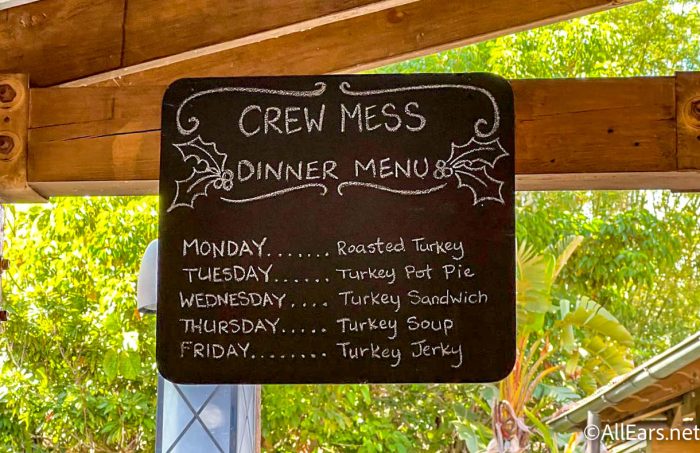 CREW MESS
DINNER MENU
MONDAY....... Roasted Turkey
TUESDAY...... Turkey Pot Pie
WEDNESDAY.... Turkey Sandwich
THURSDAY..... Turkey Soup
FRIDAY........ Turkey Jerky
©AllEars.net